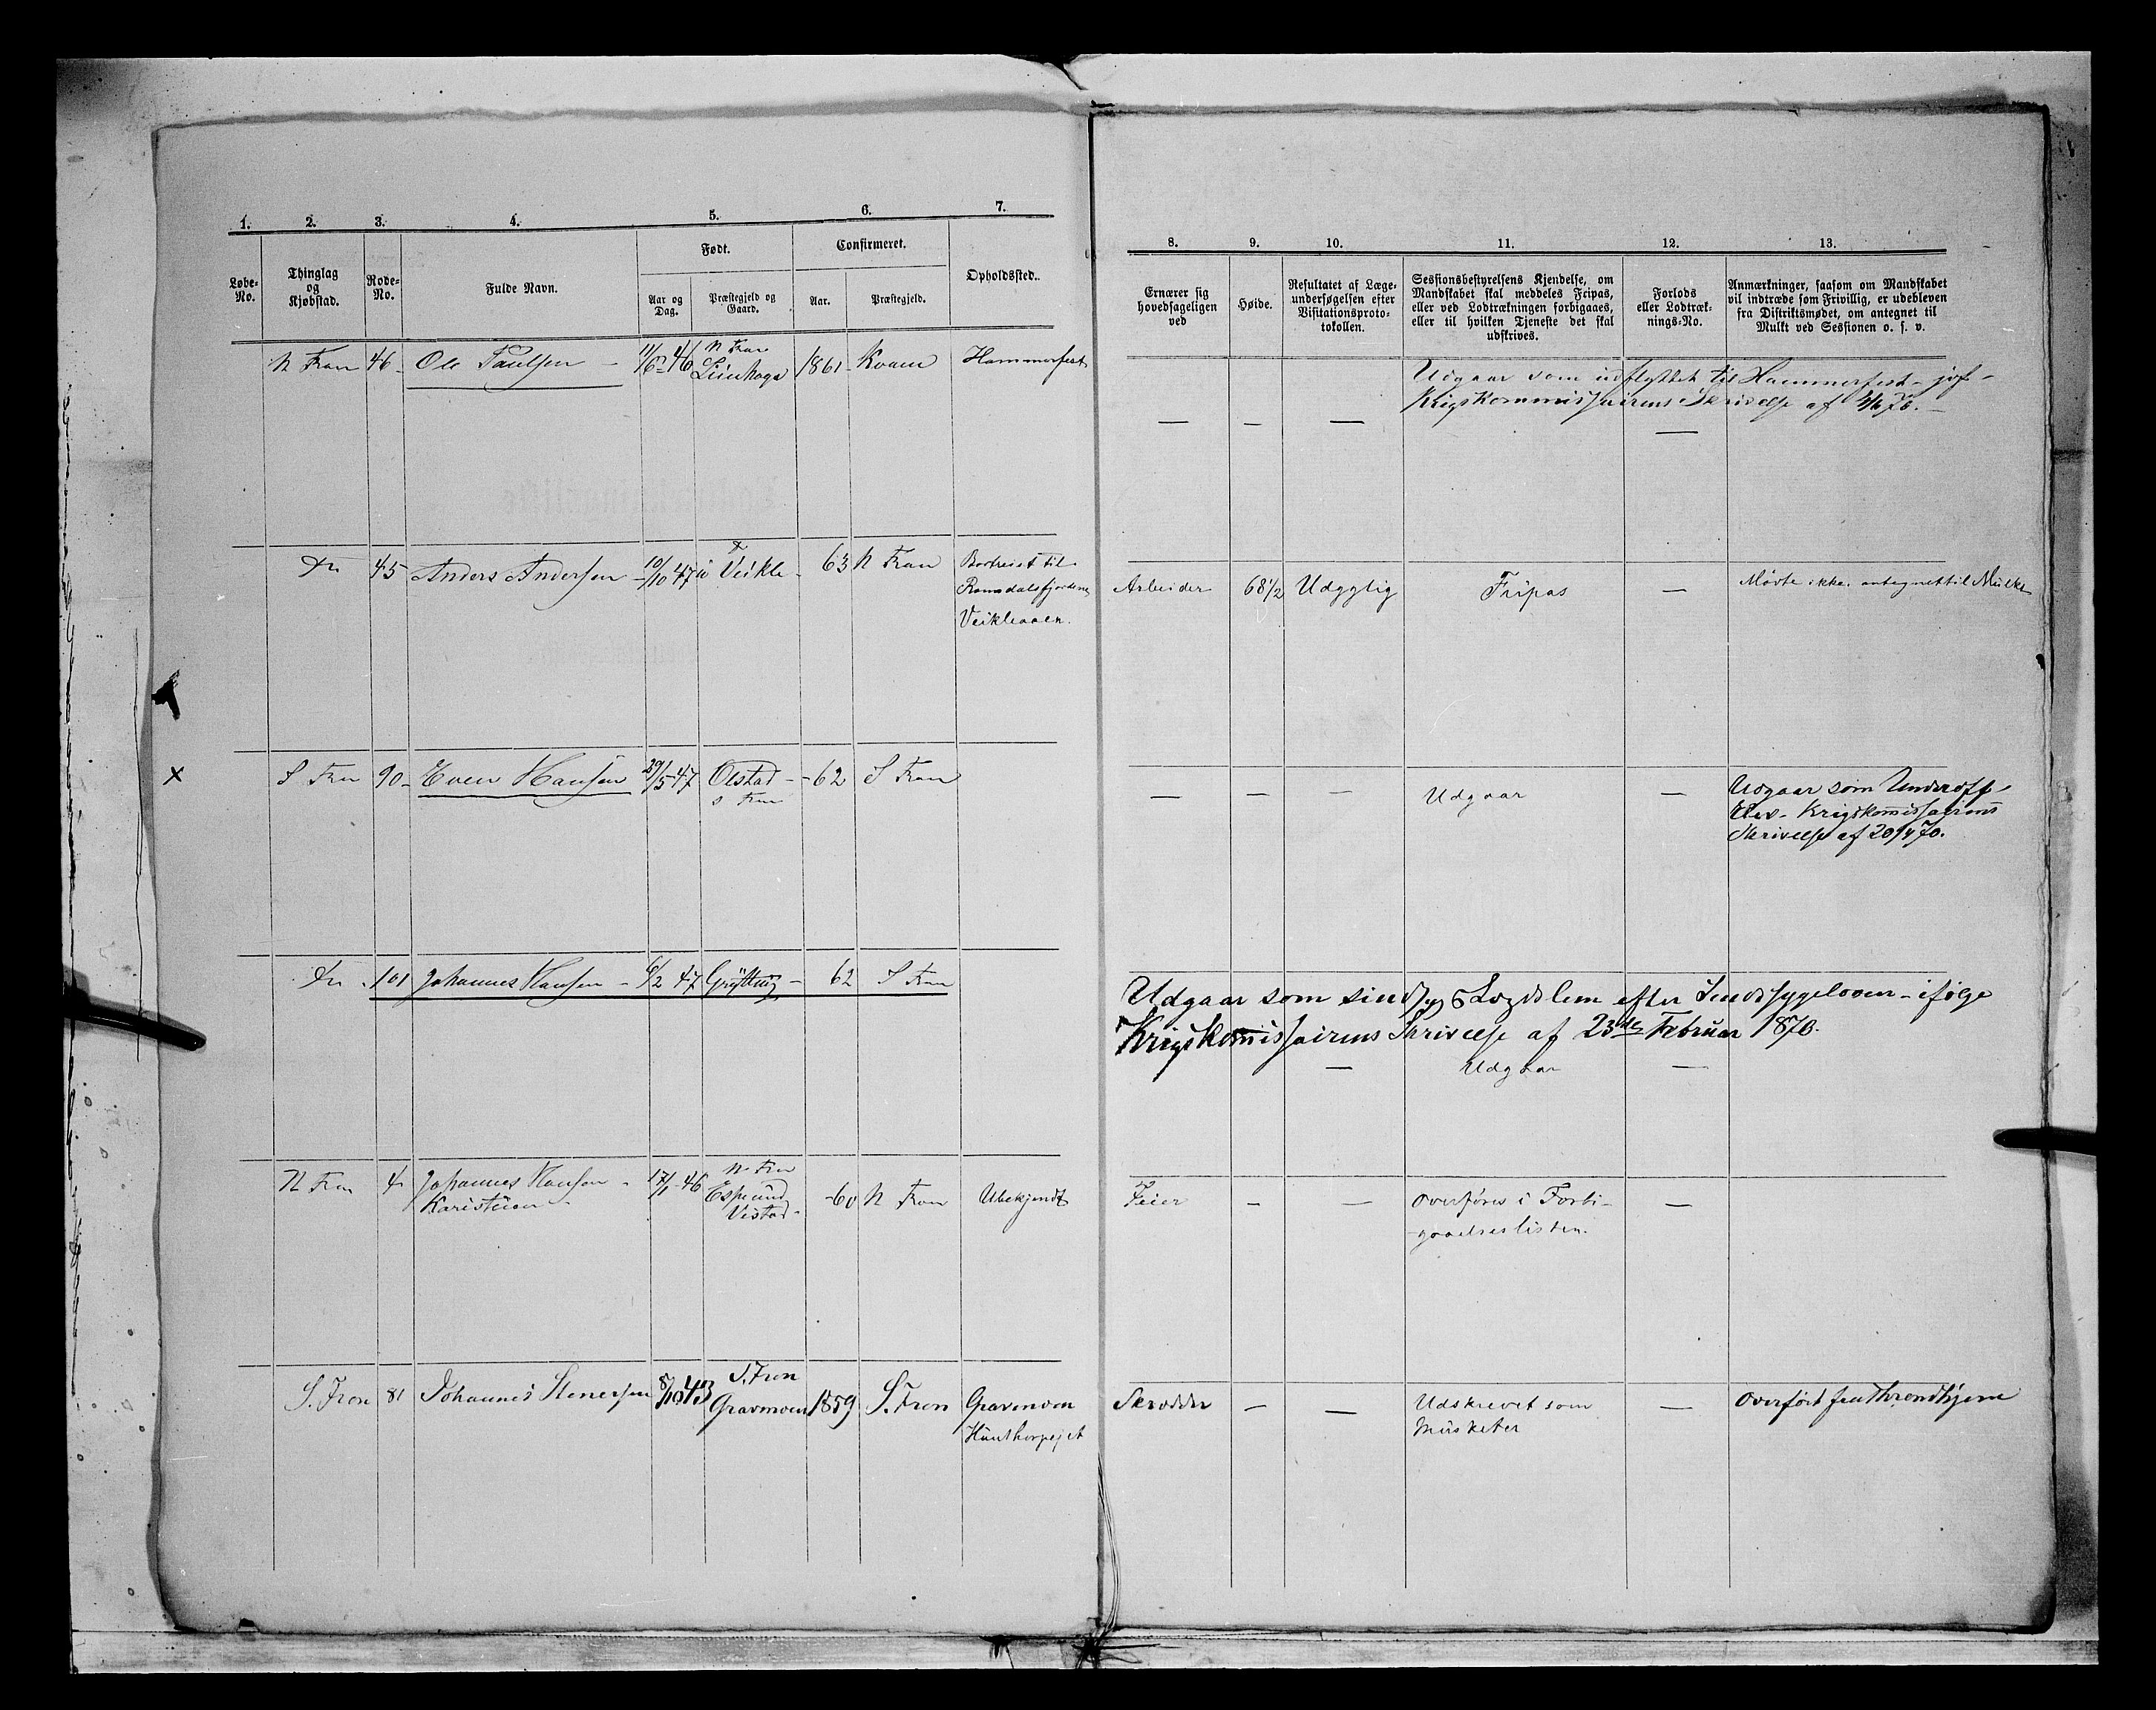 1. 2. 3. 4. 5. 6. 7.
Løbe-No. Thinglag og Kjøbstad. Rode-No. Fulde Navn. Født. Confirmeret. Opholdssted.
Aar og Dag. Præstegjeld og Gaard. Aar. Præstegjeld.
N Fron 46 - Ole Paulsen - 11/6 - 46 N Fron 1861 - Kvam Hammerfest
Do 45 Anders Andersen - 10/10 47 Veikle - 63 N Fron Bortreist til
Romsdalsfjordene
Veikleaaen.
x S Fron 90 - Even Hansen 29/5 47 Olstad - - 62 S Fron
S Fron
Do 101 Johannes Hansen - 6/2 47 Grytting - 62 S Fron
N Fron 4 Johannes Hansen - 17/1 - 46 N Fron - 60 N Fron Ubekjendt
Vistad -
S. Fron 81 Johannes Stenersen 8/10 43 S. Fron
Gravmoen 1859 S. Fron Gravmoen
8. 9. 10. 11. 12. 13.
Ernærer sig hovedsageligen ved
Høide.
Resultatet af Læge-
undersøgelsen efter
Visitationsproto-
tokollen.
Sessionsbestyrelsens Kjendelse, om
Mandskabet skal meddeles Fripas,
eller ved Lodtrækningen forbigaaes,
eller til hvilken Tjeneste det skal
udskrives.
Forlods
eller Lodtræk-
nings-No.
Anmærkninger, saasom om Mandskabet
vil indtræde som Frivillig, er udebleven
fra Distriktsmødet, om antegnet til
Mulkt ved Sessionen o. s. v.
Udgaar som udflyttet til Hammerfest - jvf -
Krigskommissairens Skrivelse af
— — — —
Arbeider 68 1/2 Udygtig Fripas — Mødte ikke. antegnet til Mulkt
— — — Udgaar — Udgaar som Underoff -
Elev - Krigskommissairens
Skrivelse af 20/4 70.
Udgaar som sindsyg Lægdslem efter Sindssygeloven - ifølge
Krigskommissairens Skrivelse af 23de Februar 1870.
— Udgaar —
Feier - — Overføres i Forbi-
gaaelseslisten. —
Skrædder - — Udskrevet som
Musketer — Overført fra Throndhjem